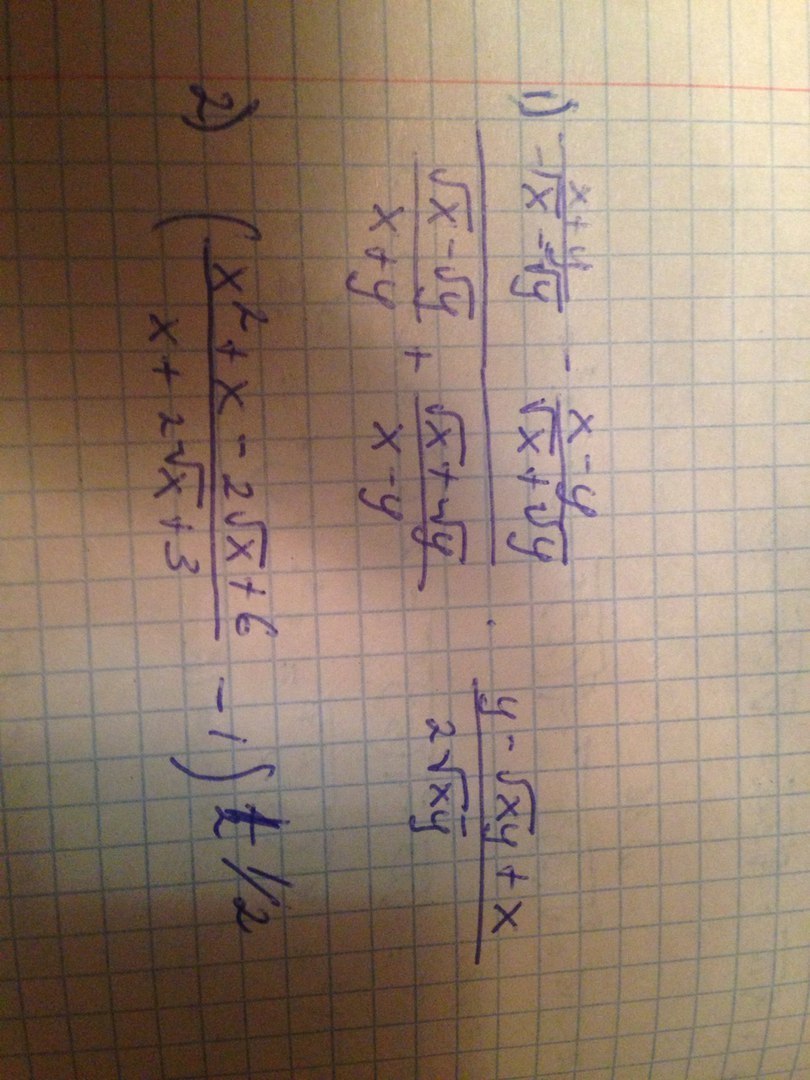 1) x + y / √x - √y - x - y / √x + √y
√x - √y / x + y + √x + √y / x - y · y - √xy + x / 2√xy
2) (x² + x - 2√x + 6 / x + 2√x + 3 - 1) 1/2